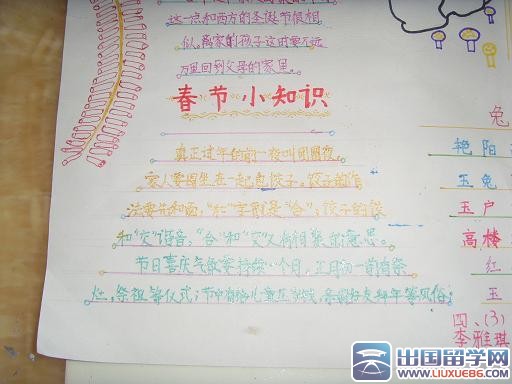 这一点和西方的圣诞节很相
似。离家的孩子这时要不远
万里回到父母的家里。
春节小知识
真正过年的前一夜叫团圆夜,
家人要围坐在一起包饺子。饺子的作
法要先和面,"和"字就是"合";饺子的饺
和"交"谐音,"合"和"交"又有相聚的意思。
节日喜庆气氛要持续一个月,正月初一前有祭
灶,祭祖等仪式;节中有给儿童压岁钱,亲朋好友拜年等风俗;
兔
艳阳
玉兔
玉户
高楼
红
玉
四、(3)
李雅琪
出国留学网
WWW.LIUXUE86.COM